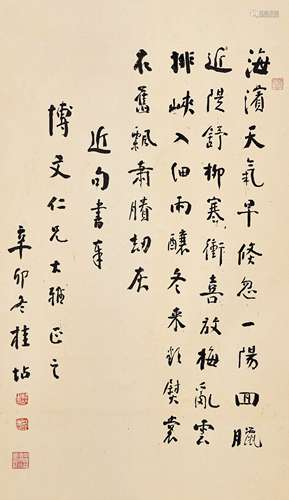 海濱天氣早倏忽一陽回臘
近隄舒柳寒衝喜放梅亂雲
排峽入細雨釀冬來熨裳
衣舊飄蕭賸劫灰
近句書奉
博文仁兄大雅正之
辛卯冬桂坫